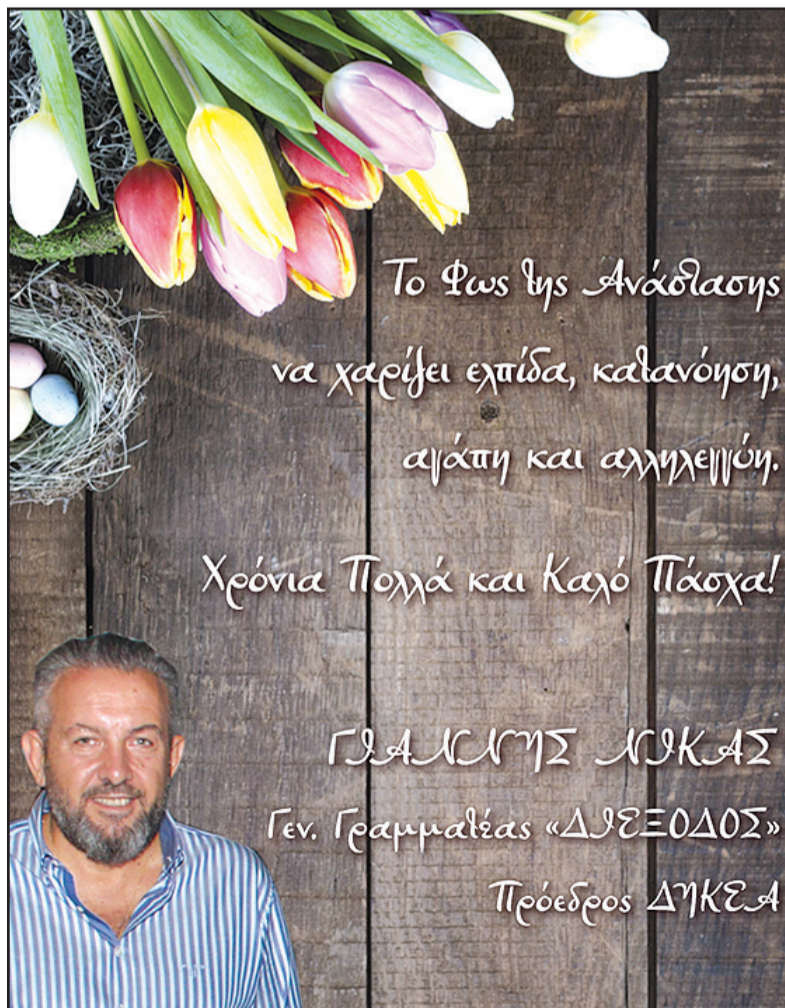 Το Φως της Ανάστασης
να χαρίζει ελπίδα, κατανόηση,
αγάπη και αλληλεγγύη.
Χρόνια Πολλά και Καλό Πάσχα!
ΓΙΑΝΝΗΣ ΝΙΚΑΣ
Γεν. Γραμματέας «ΔΙΕΞΟΔΟΣ»
Πρόεδρος ΔΗΚΕΑ